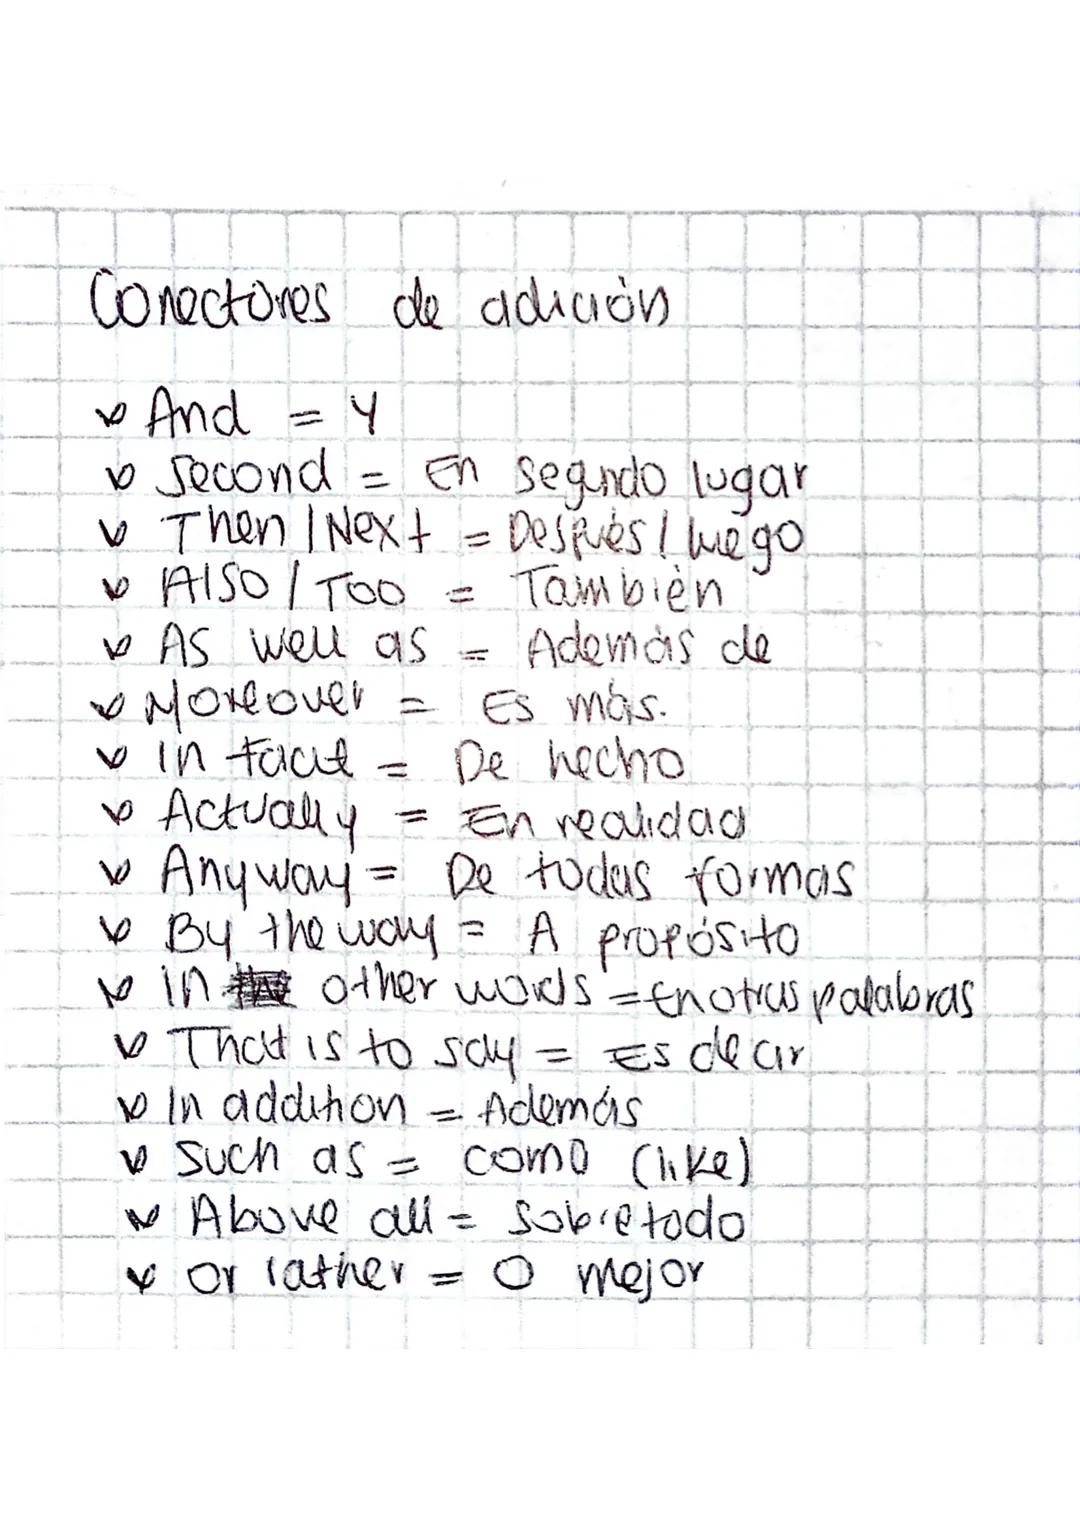 Conectores de adición
And = Y
Second = En segundo lugar
Then / Next = Después / luego
Also / Too = También
As well as = Además de
Moreover = Es más.
In fact = De hecho
Actually = En realidad
Anyway = De todas formas
By the way = A propósito
In other words = En otras palabras
That is to say = Es decir
In addition = Además
Such as = como (like)
Above all = sobre todo
Or rather = O mejor